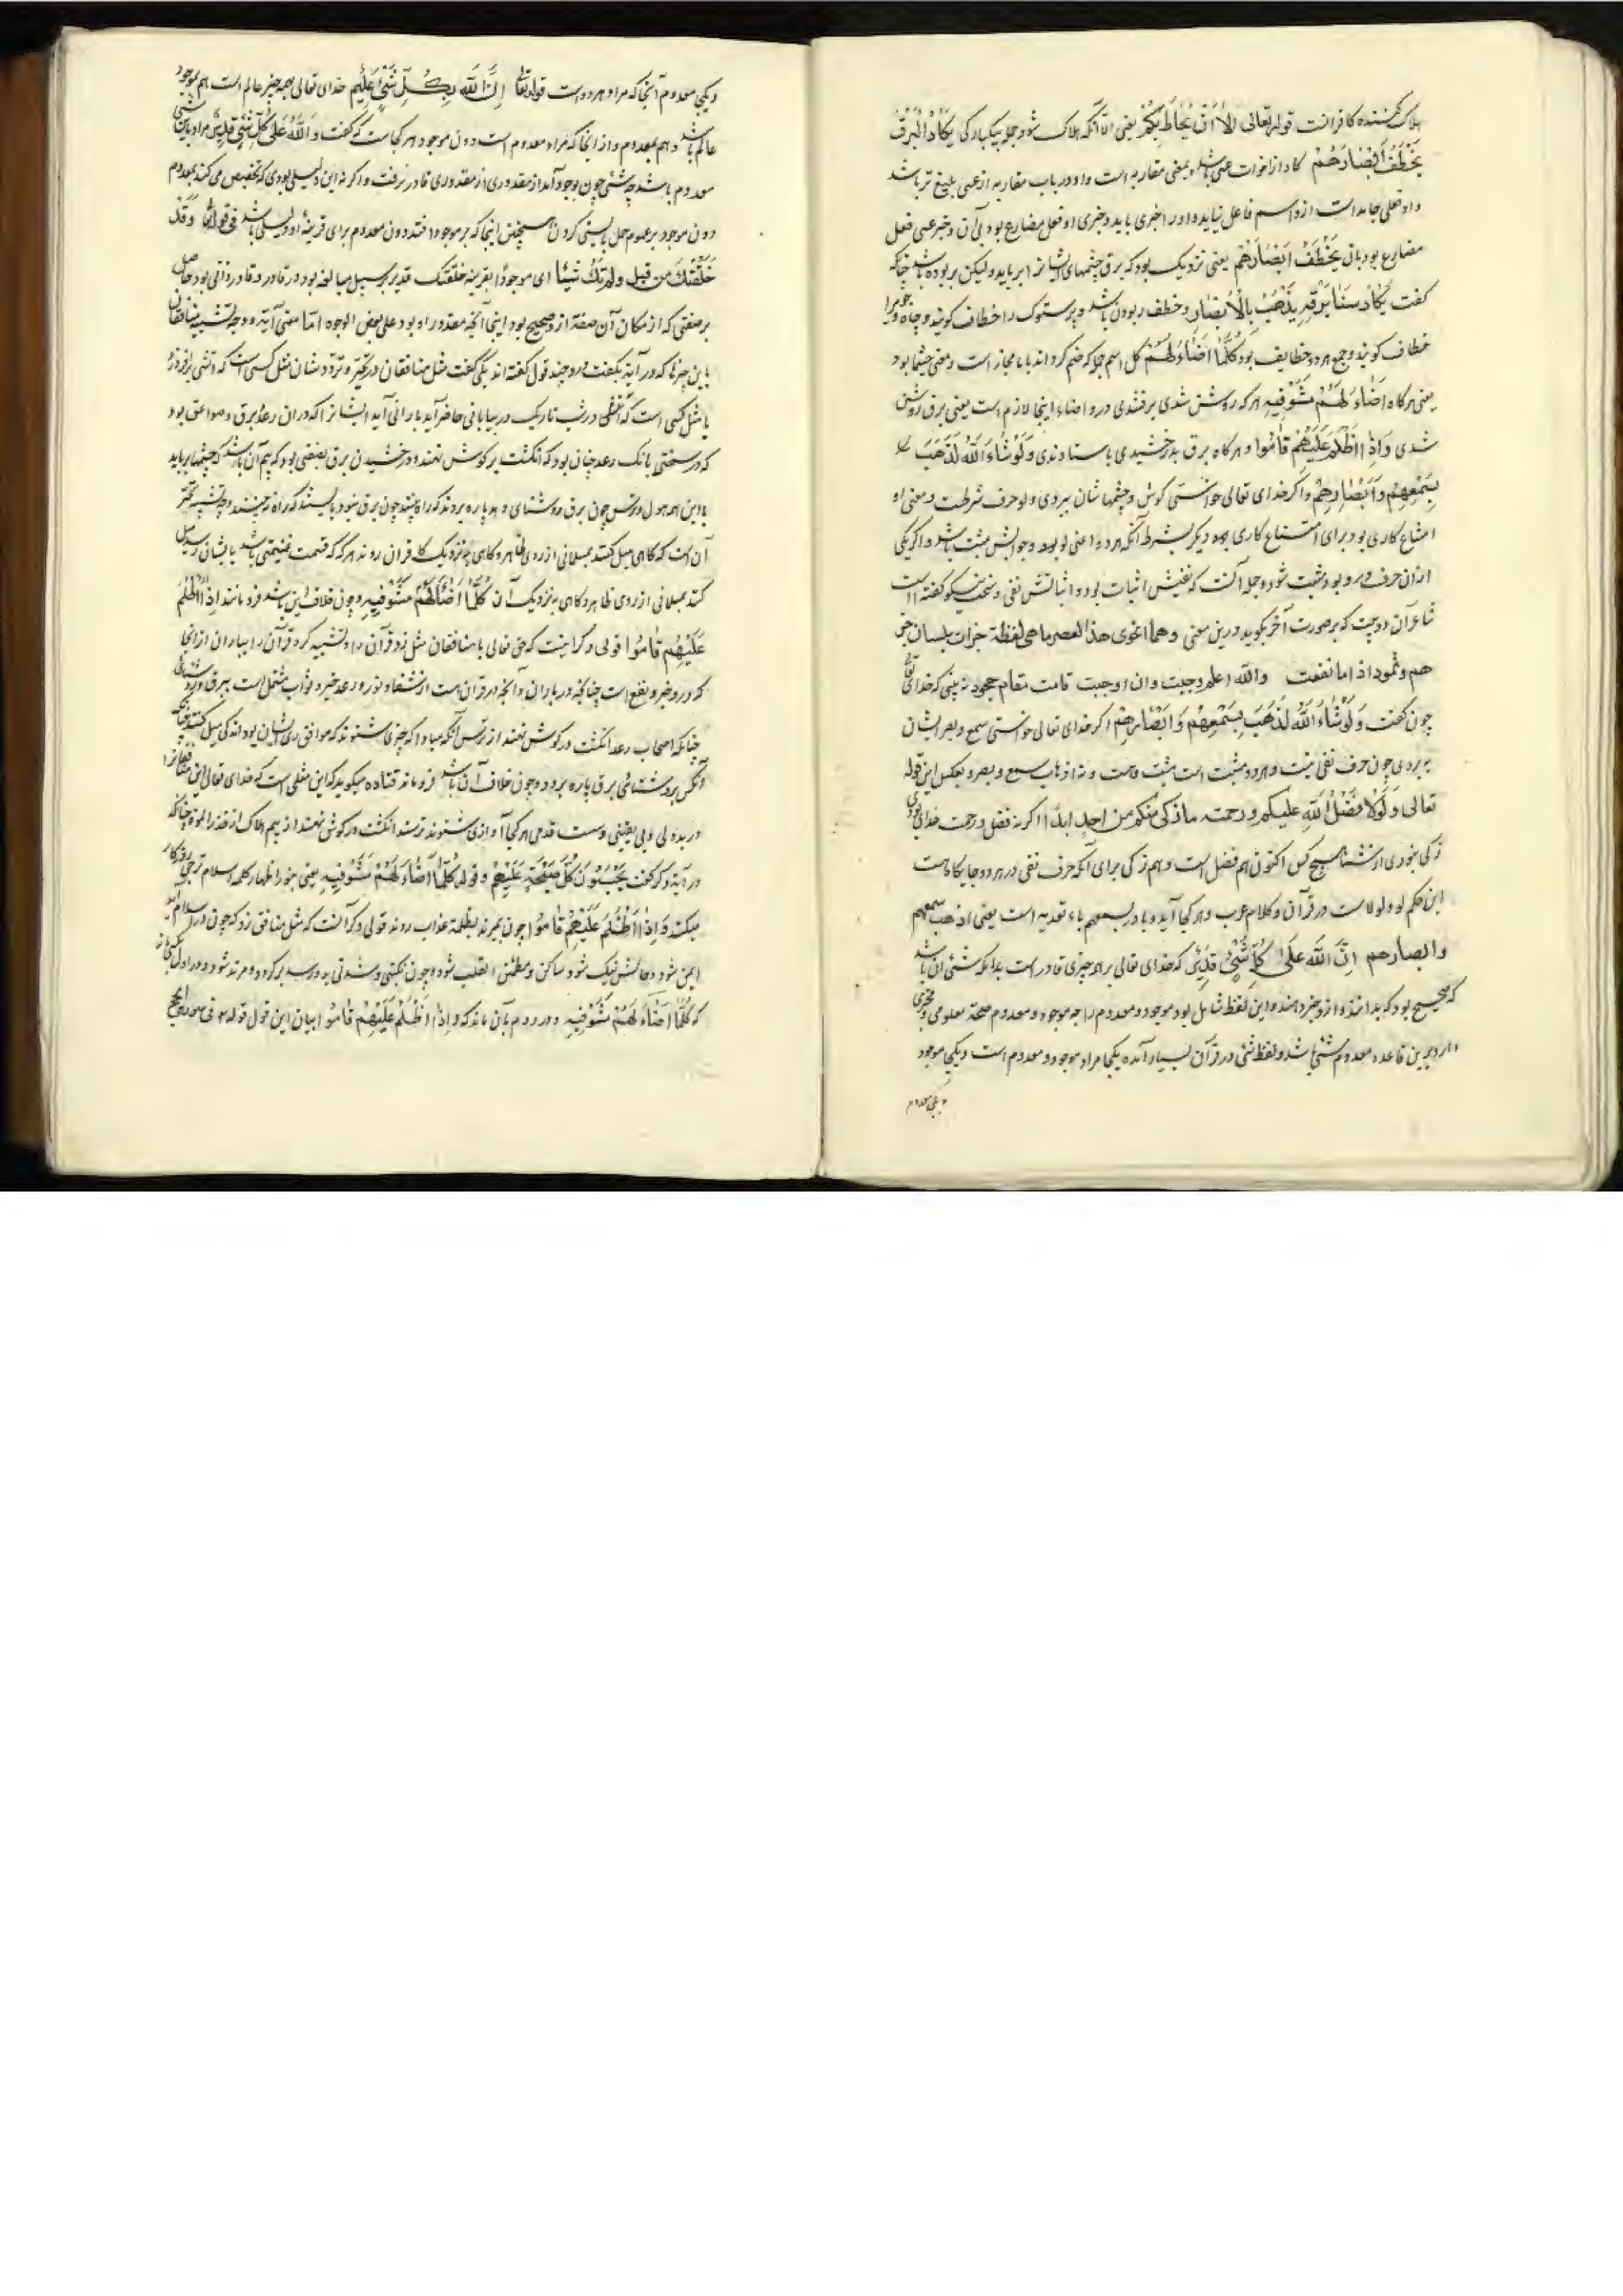 هلاک کننده کافرانت قوله تعالی اِلّا اَنْ یُحاطَ بِکُمْ یعنی الا آنکه هلاک شود جمله بیکبارگی یَکادُ الْبَرْقُ
یَخْطَفُ اَبْصارَهُمْ کاد از اخوات عسی باشد و بمعنی مقاربه است و او در باب مقاربه از عسی بلیغ تر باشد
و او فعلی جامد است از و اسم فاعل نیاید و او را خبری باید و خبری او فعل مضارع بود بی آن و خبر عسی فعل
مضارع بود بان یَخْطَفُ اَبْصارَهُمْ یعنی نزدیک بود که برق چشمهای ایشانرا برباید ولیکن بربوده باشد چنانکه
گفت یَکادُ سَنا بَرْقِهِ یَذْهَبُ بِالْاَبْصارِ و خطف ربودن باشد و پرستوک را خطاف گویند و چاه جو را
خطاف گویند و جمع هر دو خطاطیف بود کُلَّما اَضاءَ لَهُمْ کل اسم جمله که ضم کرده اند با ما مجاز است و معنی حینما بود
یعنی هرگاه اَضاءَ لَهُمْ مَشَوْا فِیهِ هرگه روشن شدی برفتندی درو اضاء اینجا لازم است یعنی برق روشن
شدی وَاِذا اَظْلَمَ عَلَیْهِمْ قامُوا و هرگاه برق بدرخشیدی باستادندی وَلَوْ شاءَ اللهُ لَذَهَبَ
بِسَمْعِهِمْ وَاَبْصارِهِمْ و اگر خدای تعالی خواستی گوش و چشمهاشان ببردی و لو حرف شرطت و معنی او
امتناع کاری بود برای امتناع کاری دیگر بشرط آنکه هر دو اعنی لو بود و جوابش مثبت باشد و اگر یکی
ازان حرف درو بود مثبت شود و جمله آنست که نفیش اثبات بود و اثباتش نفی و سخت نیکو گفته است
شاعر آن دو بیت که بر صورت آخر بگوید درین معنی و هما انحوی هذا العصر ما هی لفظة جرت بلسان جر
هم و ثمود اذا ما نفت والله اعلم وجبت وان اوجبت قامت مقام جحود نه بینی که خدای تعالی
چون گفت وَلَوْ شاءَ اللهُ لَذَهَبَ بِسَمْعِهِمْ وَاَبْصارِهِمْ اگر خدای تعالی خواستی سمع و بصر ایشان
ببردی چون حرف نفی نیست و هر دو مثبت است مثبت و نه اذهاب سمع و بصر و بعکس این قوله
تعالی وَلَوْلا فَضْلُ اللهِ علیکم ورحمته ما زکی منکم من احد ابداً اگر نه فضل و رحمت خدای بودی
زکی نبودی از شما هیچ کس اکنون هم فضل است و هم زکی برای آنکه حرف نفی در هر دو جایگاهست
این حکم لو و لولاست در قرآن و کلام عرب و هر کجا آید و با در بسمعهم باء تعدیه است یعنی اذهب سمعهم
وابصارهم اِنَّ اللهَ عَلی کُلِّ شَیْءٍ قَدِیرٌ که خدای تعالی بر همه چیزی قادر است بدانکه شیء آن باشد
که صحیح بود که بدانند و ازو خبر دهند و این لفظ شامل بود موجود و معدوم را چه موجود و معدوم صحة معلومی و مخبری
دارد برین قاعده معدوم شیء باشد و لفظ شیء در قرآن بسیار آمده یکجا مراد موجود و معدوم است و یکجا موجود
و یکجا معدوم
و یکجا معدوم آنجا که مراد هر دو است قوله تعالی اِنَّ اللهَ بِکُلِّ شَیْءٍ عَلِیمٌ خدای تعالی بهمه چیز عالم است هم بموجود
عالم باشد و هم بمعدوم و از انجا که مراد معدوم است دون موجود هر کجاست که گفت وَاللهُ عَلی کُلِّ شَیْءٍ قَدِیرٌ مراد باین شیء
معدوم باشد چه شیء چون بوجود آمد از مقدوری قادر برفت و اگر نه این دلیل بودی که تخصیص می کند بمعدوم
دون موجود بر عموم حمل بایستی کردن همچنین اینجا که بر موجود افتد دون معدوم برای قرینهٔ او دلیلی باشد فی قوله تعالی وَقَدْ
خَلَقْتُکَ مِنْ قَبْلُ وَلَمْ تَکُ شَیْئاً ای موجوداً بقرینه خلقتک قدیر بر سبیل مبالغه بود در قادر و قادر ذاتی بود حاصل
بر صفتی که از مکان آن صفة ازو صحیح بود ایتای آنچه مقدور او بود علی بعض الوجوه اما معنی آیة و وجه تشبیه منافقان
باین چیزها که در آیة بگفت درو چند قول گفته اند یکی گفت مثل منافقان در تحیر و تردد شان مثل کسی است که آتشی برافروزد
یا مثل کسی است که در شب تاریک در بیابانی حاضر آید بارانی آید ایشانرا که دران رعد و برق و صواعق بود
که در سختی بانک رعد چنان بود که انگشت بر گوش نهند و درخشیدن برق بصفتی بود که بیم آن باشد که چشمها برباید
با این همه هول و ترس چون برق روشنای دهد پاره بروند که راه بینند چون برق نبود بایستند که راه نه بینند و وجه تشبیه تحیر
آن است که گاهی میل کنند بمسلمانی از روی ظاهر و گاهی به نزدیک کافران روند هر گه که قسمت غنیمتی باشد بایشان رسد میل
کنند بمسلمانی از روی ظاهر و گاهی به نزدیک آن کُلَّما اَضاءَ لَهُمْ مَشَوْا فِیهِ و چون خلاف این باشد فرو مانند اِذا اَظْلَمَ
عَلَیْهِمْ قامُوا قولی دگر اینست که حق تعالی با منافقان مثل زد قرآن را و تشبیه کرد قرآن را بباران ازانجا
که درو خیر و نفع است چنانکه در باران و آنچه در قرآن است از شفاء و نور و رعد خیر و ثواب مشتمل است ببرق و روشنائی
چنانکه اصحاب رعد انگشت در گوش نهند از ترس آنکه مبادا که چیزی شنوند که موافق رای ایشان بود اندکی میل کنند چنانکه
آنکس بروشنائی برق پاره برود و چون خلاف آن باشد فرو ماند قتاده میگوید که این مثلی است که خدای تعالی این منافقانرا
در بددلی و بی یقینی و سست قدمی هر کجا آوازی شنوند ترسند انگشت در گوش نهند از بیم هلاک از حذر الموت چنانکه
در آیة دگر گفت یَحْسَبُونَ کُلَّ صَیْحَةٍ عَلَیْهِمْ و قوله کُلَّما اَضاءَ لَهُمْ مَشَوْا فِیهِ یعنی چون اظهار کلمه اسلام ترجی روزگار
میکنند وَاِذا اَظْلَمَ عَلَیْهِمْ قامُوا چون بمیرند بظلمة عذاب روند قولی دگر آنست که مثل منافق زد که چون در اسلام آید
ایمن شود و حالش نیک شود ساکن و مطمئن القلب شود و چون نکبتی و شدتی بدو رسد برگردد و مرتد شود و در اول
که کُلَّما اَضاءَ لَهُمْ مَشَوْا فِیهِ و در دوم بآن ماند که وَاِذا اَظْلَمَ عَلَیْهِمْ قامُوا بیان این قول قوله فی سورة الحج